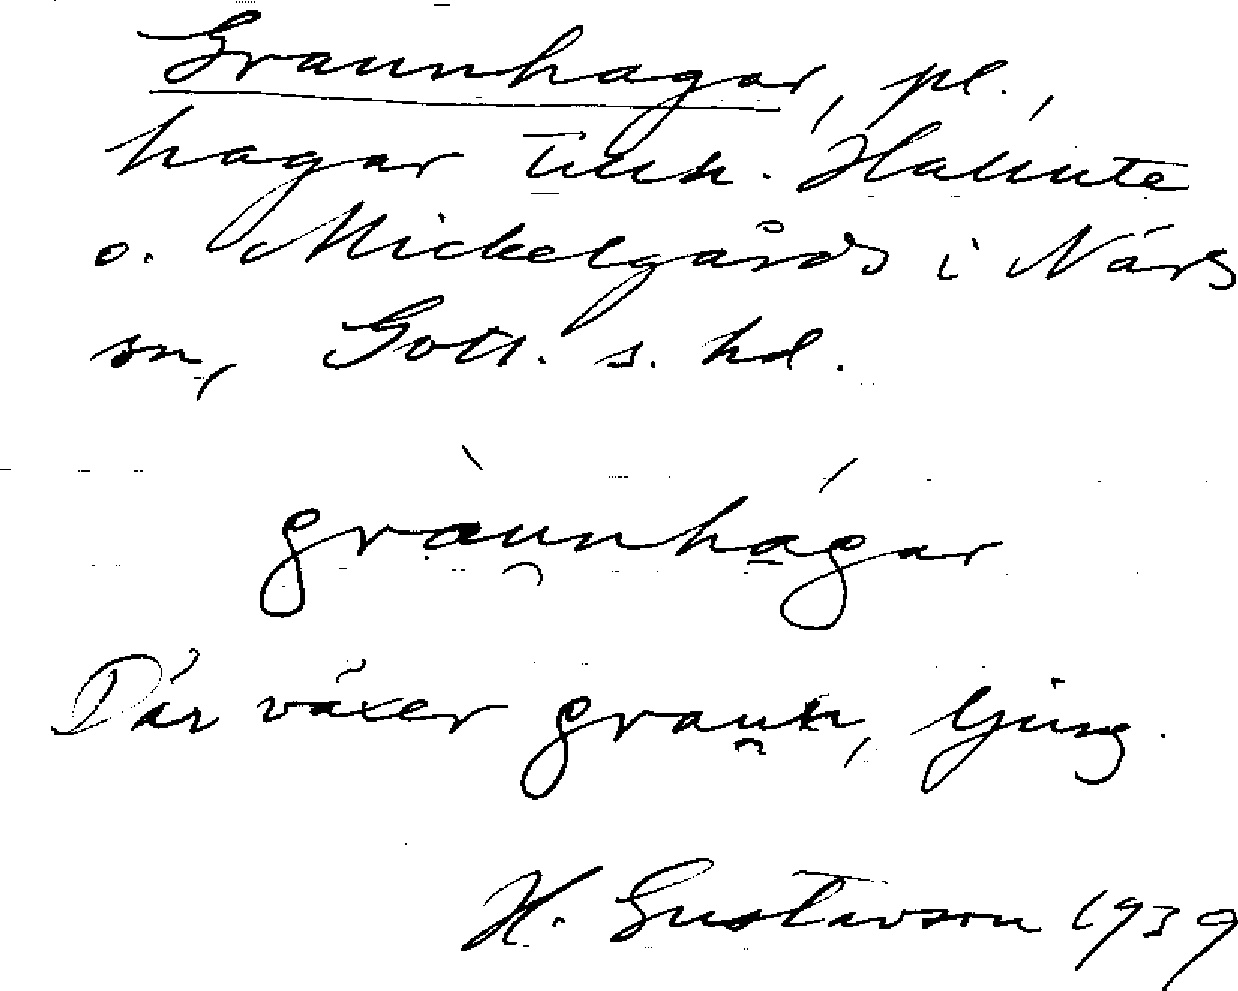 Graunhagar, pl.,
hagar tillh. Hallute
o. Mickelgårds i Närs
sn, Gotl. s. hd.
gràu̯nhágar
Där växer grau̯n, ljung.
H. Gustavson 1939